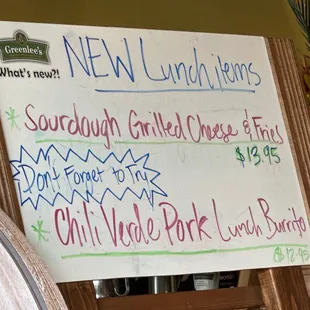 Greenlee's
What's new?!
NEW Lunch items
* Sourdough Grilled Cheese & Fries
$13.95
Don't Forget to Try
* Chili Verde Pork Lunch Burrito
$12.95